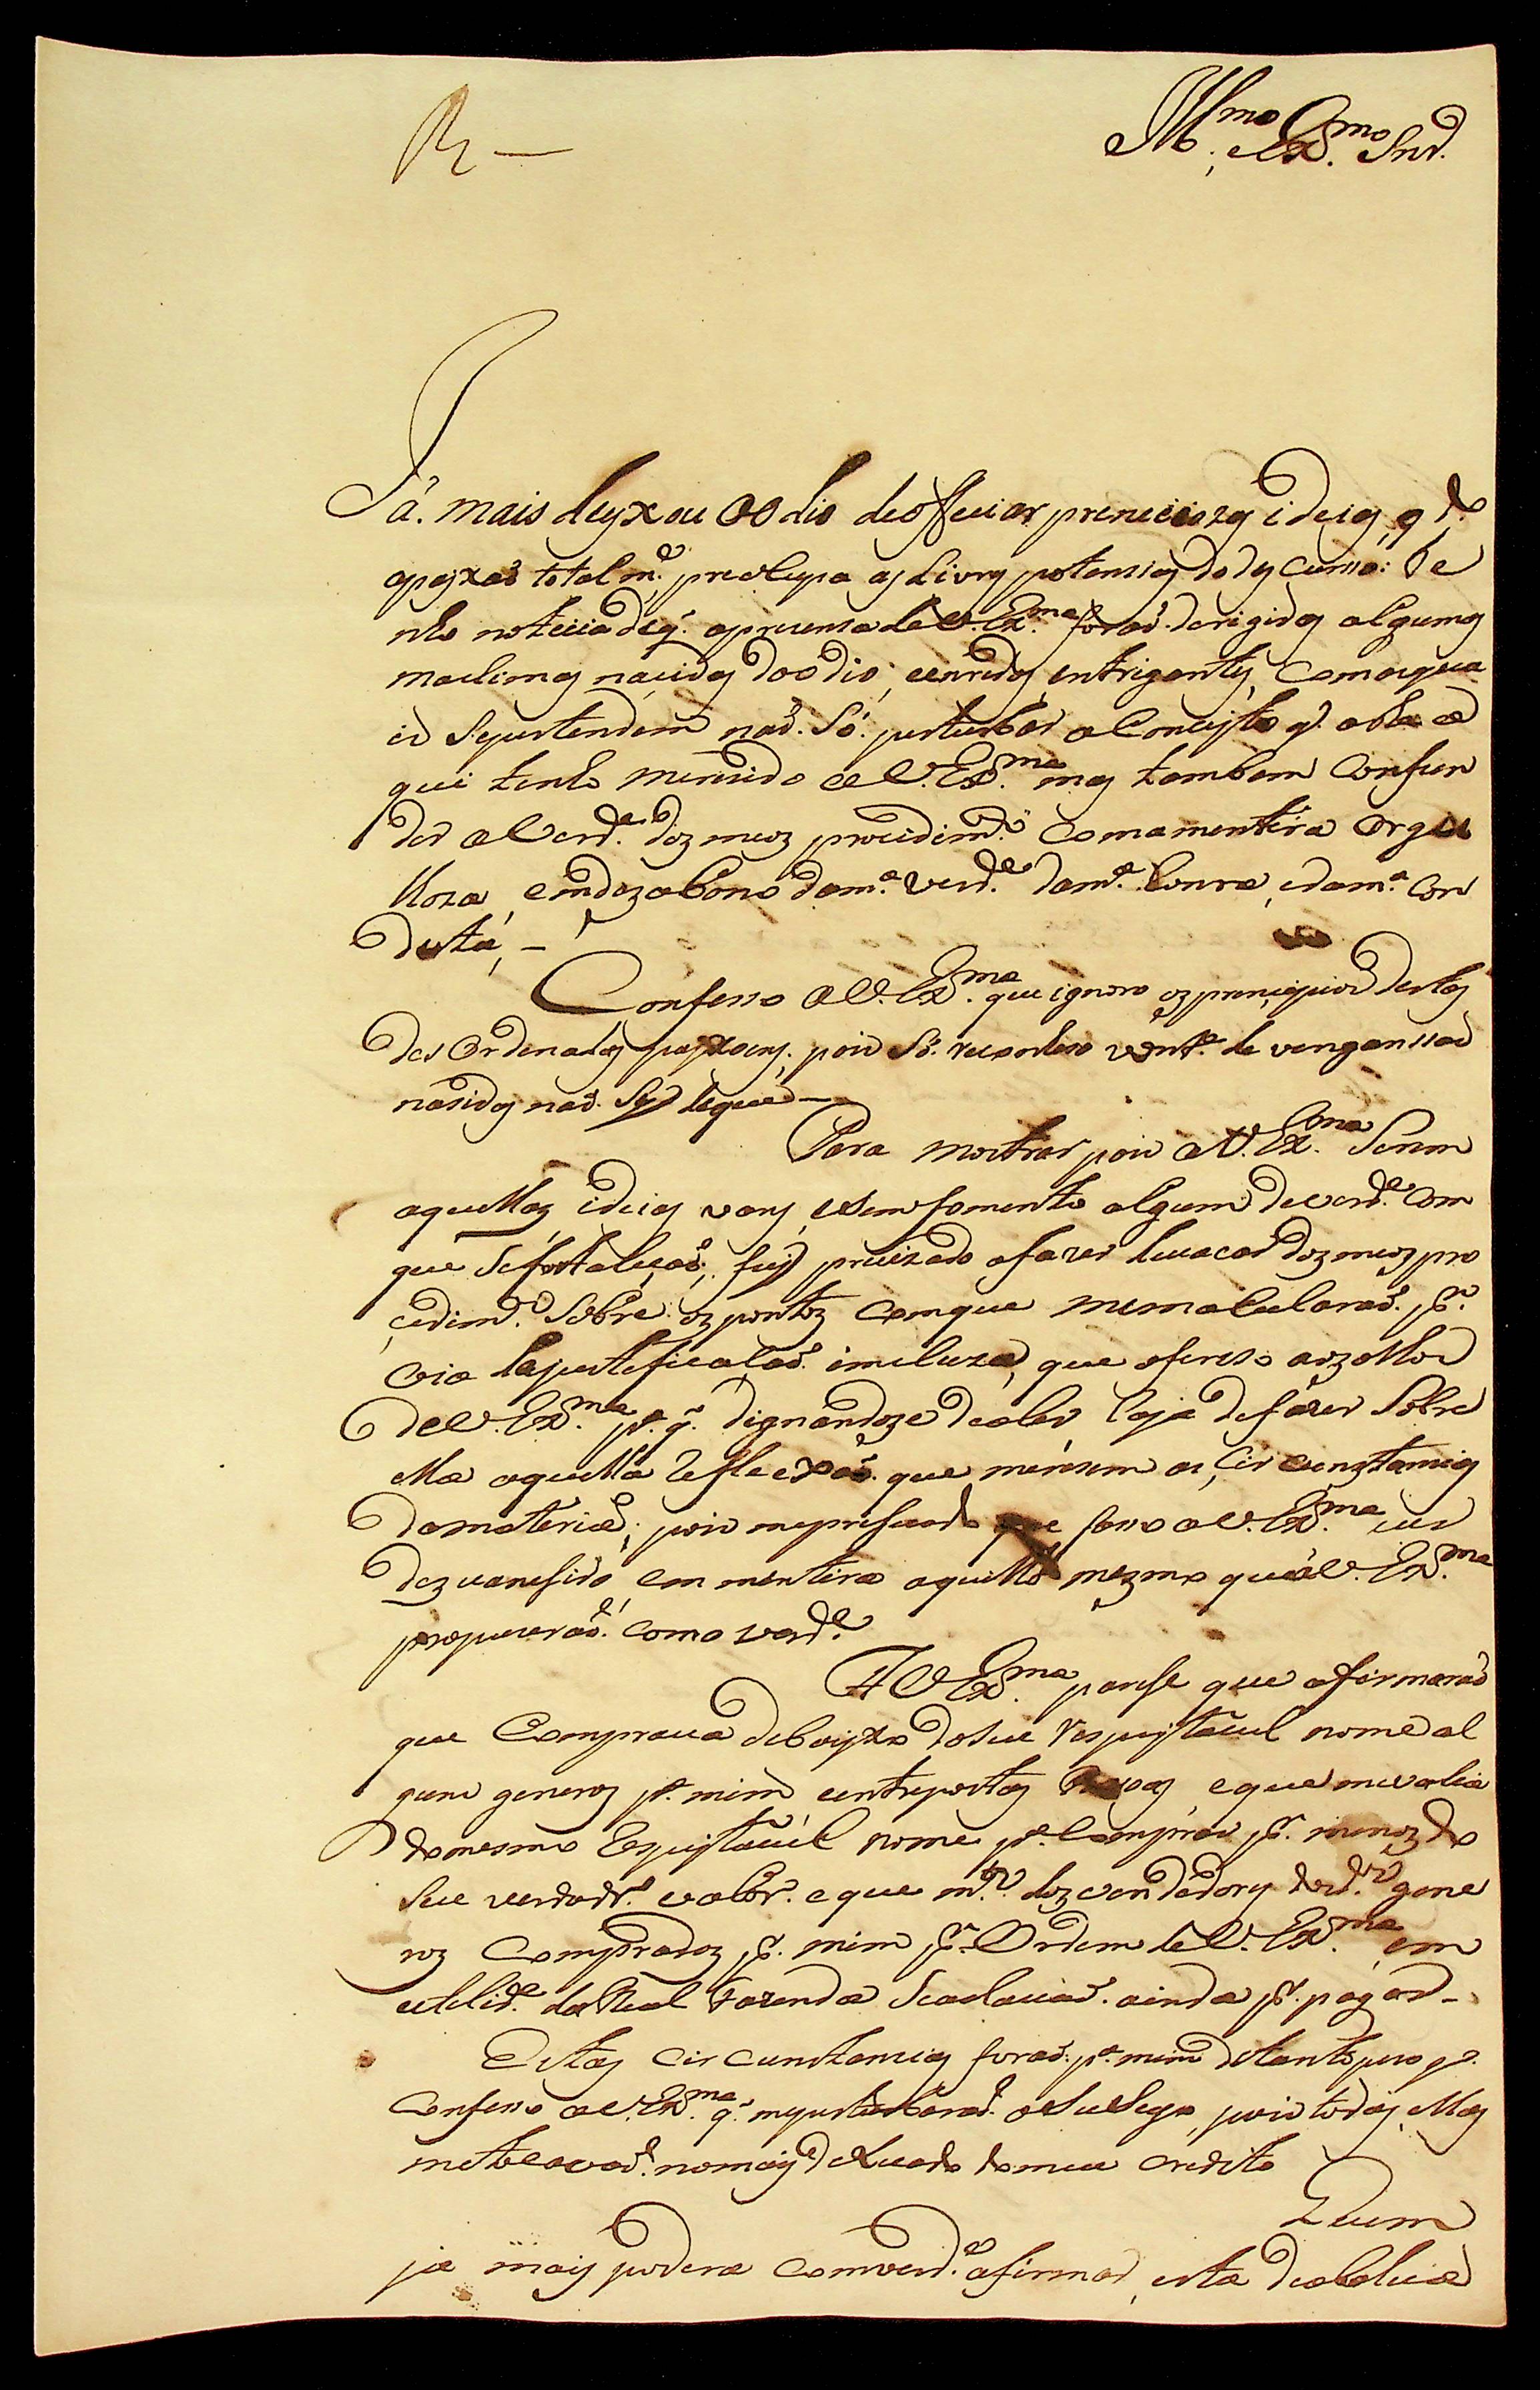 R —
Ill.mo Ex.mo Snr.
Já. mais deyxou o odio de offuscar preneciozas ideias, qd.o
apayxaõ totalm.e preocupa as Livres potencias do descurso: Te
nho noteciad q.̃ apresensa de V. Ex.ma foraõ. derigidas algumas
maximas nacidas do odio, eenredos entrigantes, Com as qua
is Sepertendem naõ. Só. perturbar o Conceyto q.̃ athe a
qui tenho meresido a V. Ex.ma mas tambem Confun
der a Verd.e doz meos procedim.tos Com a mentira Orgu
lhoza, emdezabono dam.a Verd.e dam.a honra, edam.a Con
duta, —
Confesso a V. Ex.ma que ignoro oz prencipios destas
des Ordenadas payxoens. pois Só. reconheso vont.e de vengansas
nasidas naõ. Sey deque —
Para mostrar pois a V. Ex.ma Serem
aquellas ideias vans, esem fomento algum de verd.e Com
que Sefortaleçaõ, fuy precizado afazer hua cas doz meos pro
cedim.tos Sobre oz pontoz Comque memacularaõ. p.r
via da justeficaçaõ. incluza, que oferesso aoz olhos
de V. Ex.ma p.a q.̃ dignandoze de aler, haja de fazer Sobre
ella aquella Reflexaõ. que meresem as Circunstancias
da materia; pois mepresuado que faso a V. Ex.ma ver
dezvanesido em mentira aquillo mezmo que a V. Ex.ma
propuzeraõ. Como verd.e
A V Ex.ma parese que afirmaraõ
que Comprava debayxo do Seu Respeytavel nome al
guns generoz p.a mim eentrepostas pesoas, eque mevalia
do mesmo Espeytavel nome p.a Comprar p.r menoz do
Seu verdadr.o valor. e que m.tos doz vendedores dos d.os gene
roz Compradoz p.r mim p.r Ordem de V. Ex.ma em
utelid.e da Real Fazenda Seachavaõ. ainda p.r pagar —
Estas Circunstancias foraõ. p.a mim de tanto pezo q.̃
Confeso a V. Ex.ma q.̃ meperturbaraõ. o Susego, pois todas ellas
metocavaõ. no mais delicado do meu Credito
Quem
já mais podera Comverd.e afirmar, esta diabolica